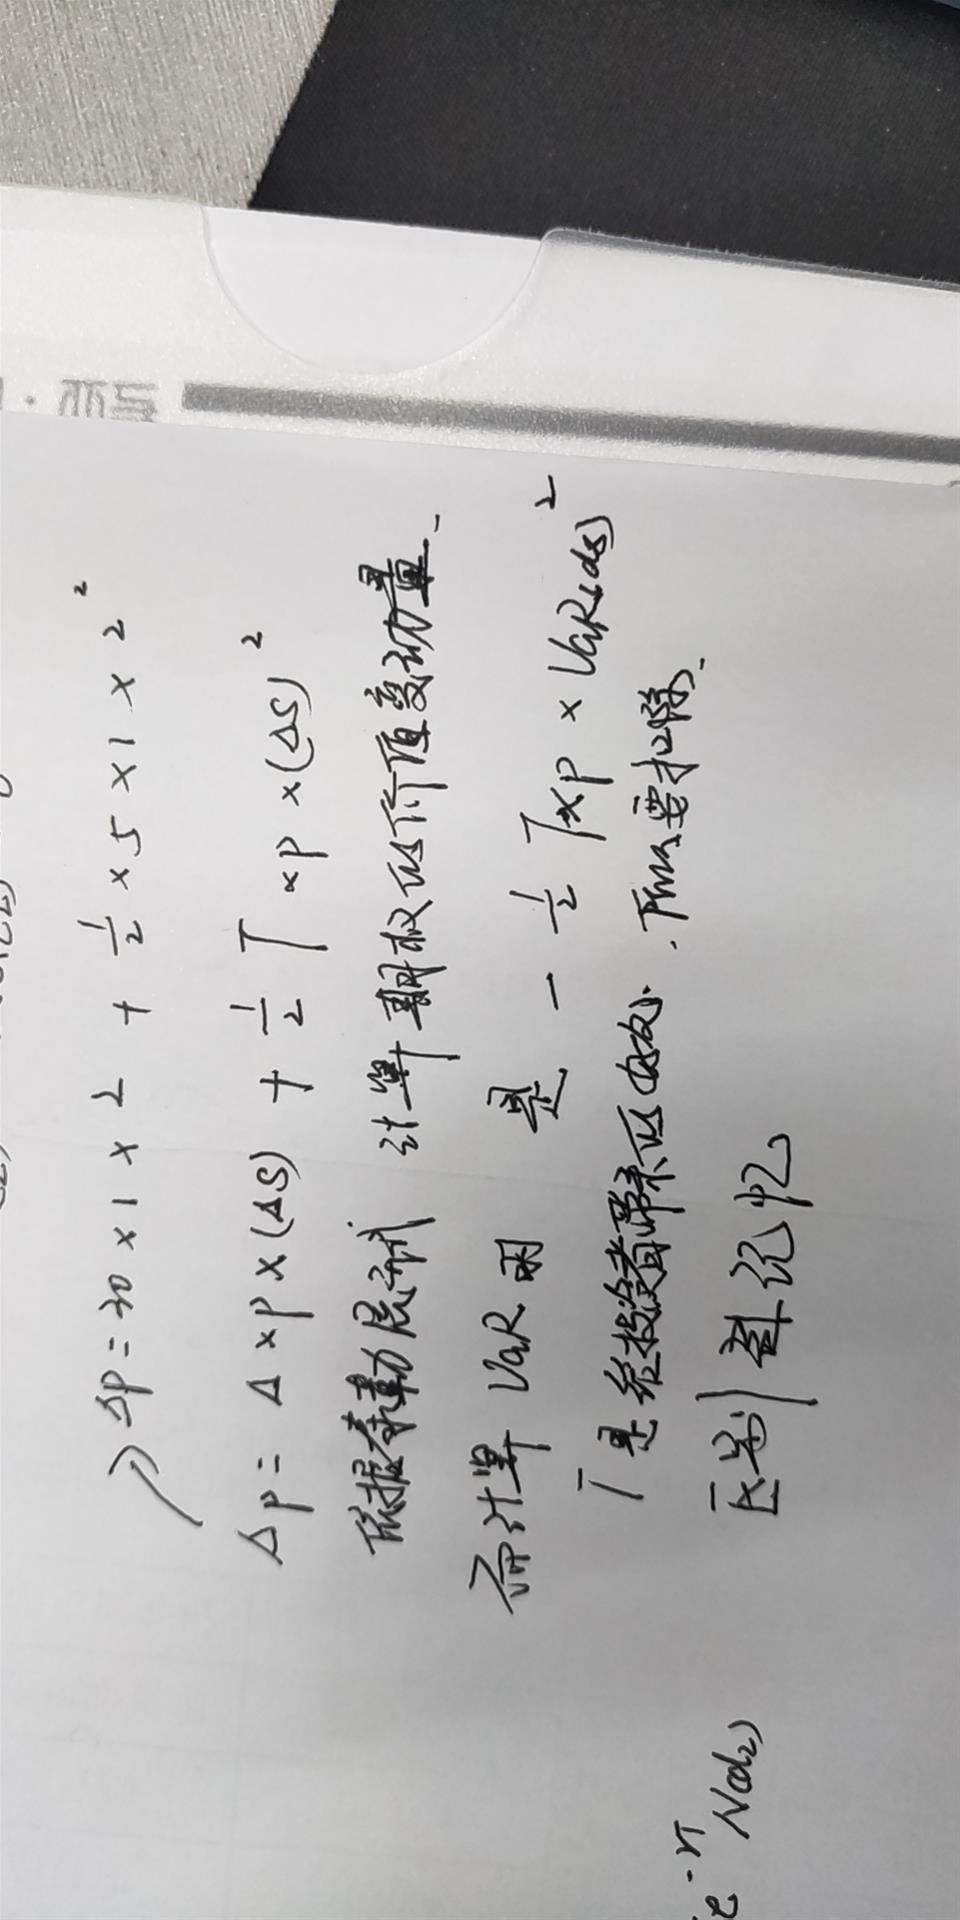 ΔP = 30 × 1 × 2 + 1/2 × 5 × 1 × 2²
ΔP = Δ × P × (ΔS) + 1/2 Γ × P × (ΔS)²
依据泰勒展开式 计算期权的价值变动量.
而计算 VaR 时 是 - 1/2 Γ × P × VaR(ds)²
Γ是给投资者带来的 . 要扣除.
区别 记忆
e^-rT N(d2)